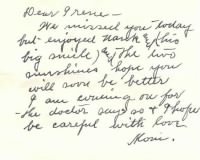 Dear Irene —
We missed you today
but enjoyed Hank & (his
big smile) & (The two
sunshines hope you
will soon be better
I am coming on for
the doctor says so & I hope
be careful with love